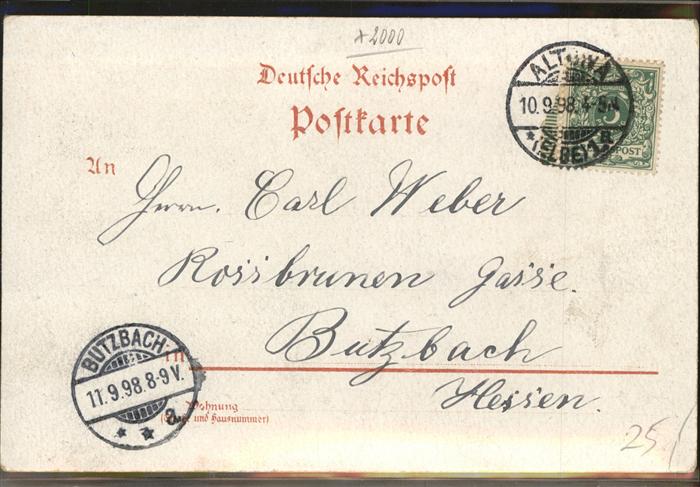 *2000
Deutsche Reichspost
Postkarte
ALTONA
10.9.98.4-5N
* (ELBE) 1.B
5
POST
An
Herrn. Carl Weber
Rossbrunnen Gasse.
Butzbach
Hessen.
BUTZBACH
11.9.98.8-9 V.
* * a
in
Wohnung
(Straße und Hausnummer)
25